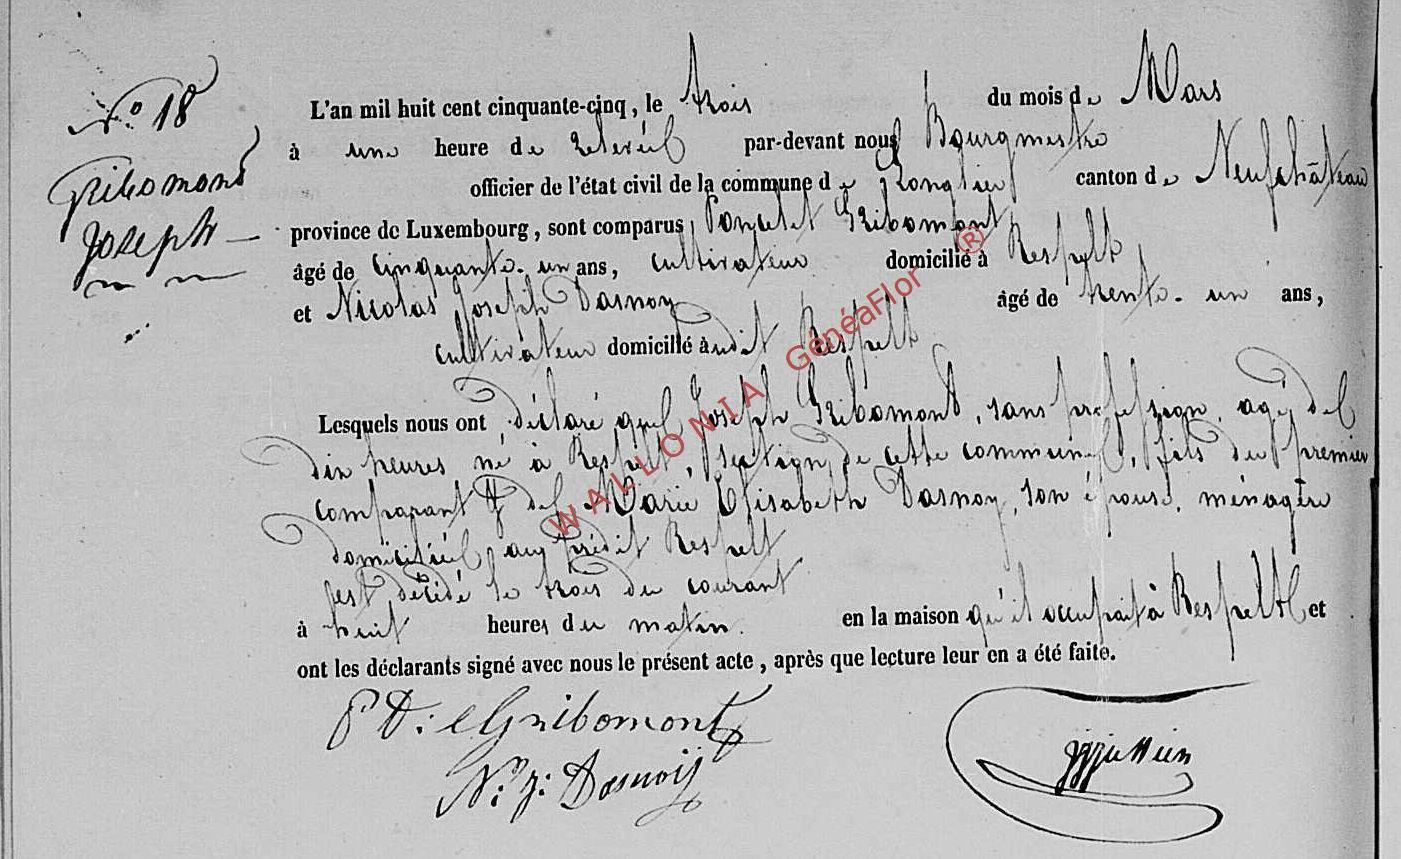 N° 18
Gribomont
Joseph
L'an mil huit cent cinquante-cinq, le trois du mois de Mars
à une heure de relevée par-devant nous Bourgmestre
officier de l'état civil de la commune de Longlier canton de Neufchâteau
province de Luxembourg, sont comparus Poncelet Gribomont
âgé de Cinquante-un ans, cultivateur domicilié à Respelt
et Nicolas Joseph Dasnoy âgé de trente-un ans,
cultivateur domicilié audit Respelt
Lesquels nous ont déclaré que Joseph Gribomont, sans profession, agé de
dix heures né à Respelt, section de cette commune, fils du premier
comparant & de Marie Elisabeth Dasnoy, son épouse, ménagère
domiciliée au prédit Respelt
est décédé le trois du courant
à huit heures du matin en la maison qu'il occupait à Respelt et
ont les déclarants signé avec nous le présent acte, après que lecture leur en a été faite.
P D: Gribomont
N: J: Dasnoij
WALLONIA GénéaFlor ®